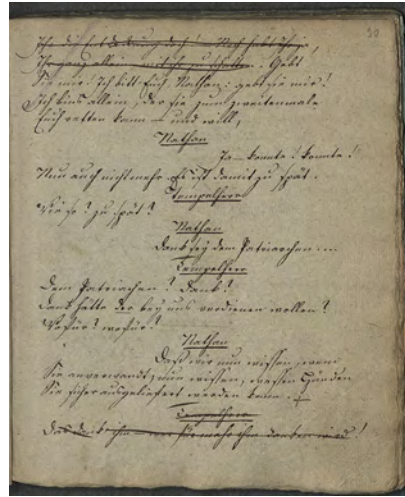 30
Ihr doch! — Noch habt Ihr ja,
Ihr ganz allein, mit ihr zu schalten. Gebt
Sie mir! Ich bitt Euch, Nathan; gebt sie mir!
Ich bins allein, der sie zum zweitenmale
Euch retten kann — und will,
Nathan
Ja — konnte! konnte!
Nun auch nicht mehr. Es ist damit zu spät.
Tempelherr
Wie so? zu spät?
Nathan
Dank sey dem Patriarchen ...
Tempelherr
Dem Patriachen? Dank?
Dank hätte der bey uns verdienen wollen?
Wofür? wofür?
Nathan
Daß wir nun wissen, wem
Sie anverwandt, nun wissen, wessen Händen
Sie sicher ausgeliefert werden kann.
Tempelherr
Das dank ihm — wer für mehr ihm danken wird!